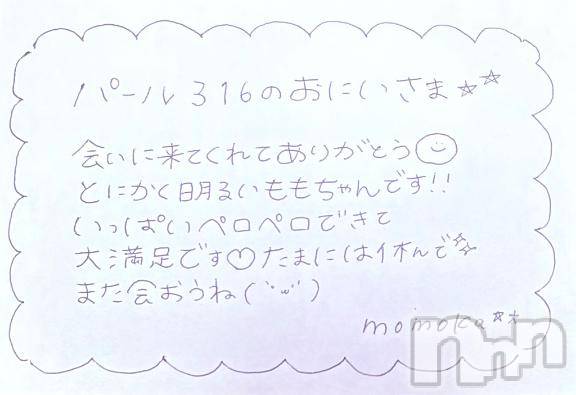 パール316のおにいさま☆☆
会いに来てくれてありがとう
とにかく明るいももちゃんです!!
いっぱいペロペロできて
大満足です♡たまには休んで☆
また会おうね(˙ω˙)
momoka☆☆
nnn